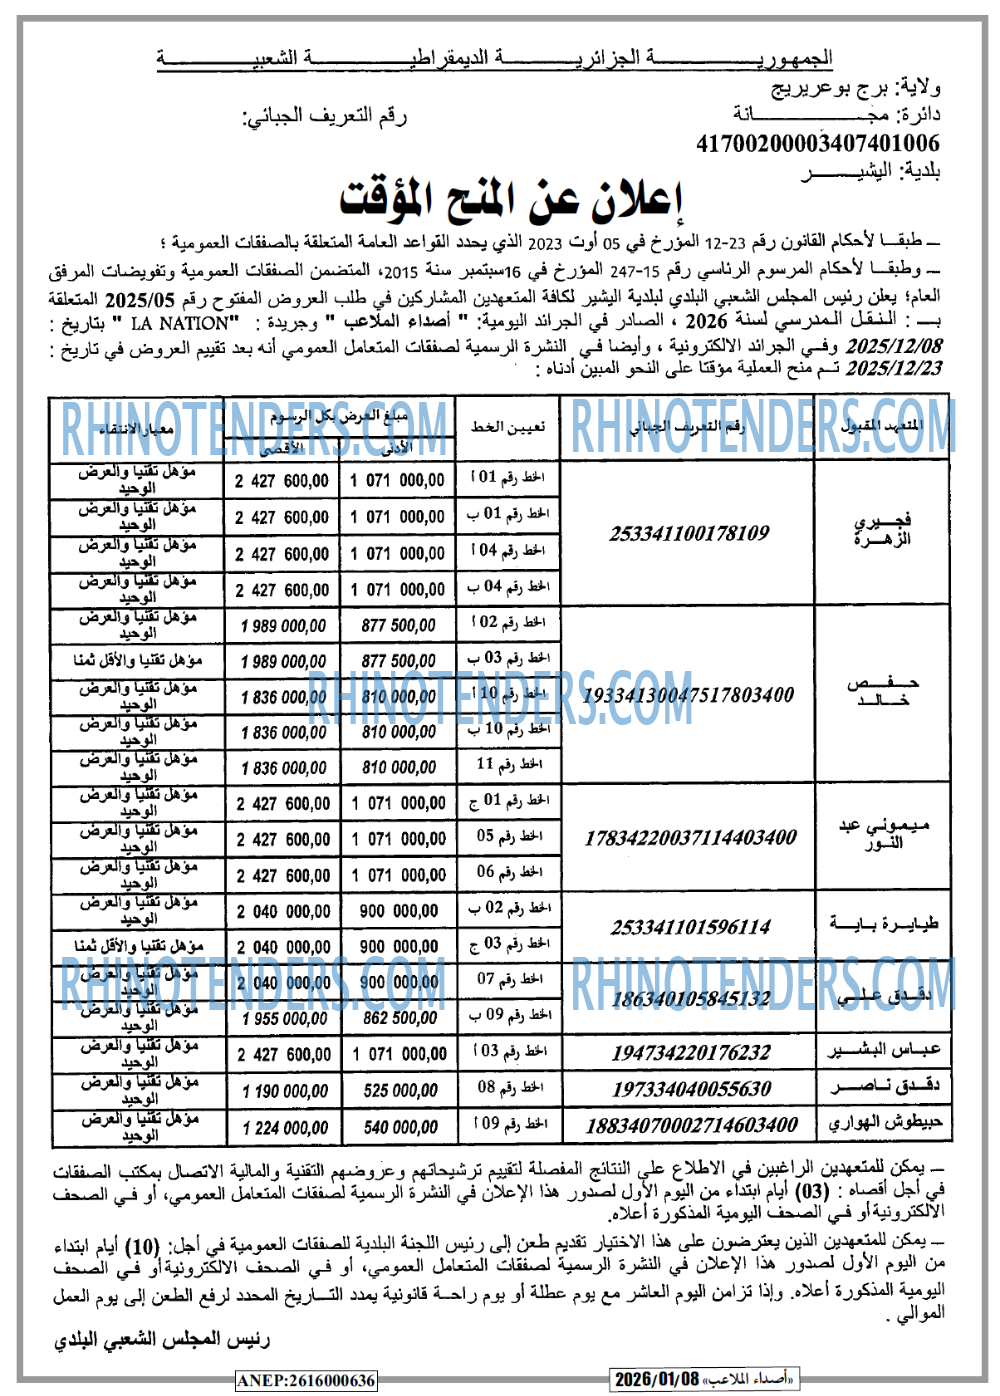 الجمهورية الجزائرية الديمقراطية الشعبية
ولاية: برج بوعريريج
دائرة: مجانة
رقم التعريف الجبائي:
41700200003407401006
بلدية: اليشير
إعلان عن المنح المؤقت
– طبقا لأحكام القانون رقم 23-12 المؤرخ في 05 أوت 2023 الذي يحدد القواعد العامة المتعلقة بالصفقات العمومية ؛
– وطبقا لأحكام المرسوم الرئاسي رقم 15-247 المؤرخ في 16سبتمبر سنة 2015، المتضمن الصفقات العمومية وتفويضات المرفق
العام؛ يعلن رئيس المجلس الشعبي البلدي لبلدية اليشير لكافة المتعهدين المشاركين في طلب العروض المفتوح رقم 2025/05 المتعلقة
بـ : النقل المدرسي لسنة 2026 ، الصادر في الجرائد اليومية: " أصداء الملاعب " وجريدة : "LA NATION " بتاريخ :
2025/12/08 وفي الجرائد الالكترونية ، وأيضا في النشرة الرسمية لصفقات المتعامل العمومي أنه بعد تقييم العروض في تاريخ :
2025/12/23 تم منح العملية مؤقتا على النحو المبين أدناه :
المتعهد المقبول | رقم التعريف الجبائي | تعيين الخط | مبلغ العرض بكل الرسوم | معيار الانتقاء
الأدنى | الأقصى
فجيري الزهرة | 253341100178109 | الخط رقم 01 أ | 1 071 000,00 | 2 427 600,00 | مؤهل تقنيا والعرض الوحيد
الخط رقم 01 ب | 1 071 000,00 | 2 427 600,00 | مؤهل تقنيا والعرض الوحيد
الخط رقم 04 أ | 1 071 000,00 | 2 427 600,00 | مؤهل تقنيا والعرض الوحيد
الخط رقم 04 ب | 1 071 000,00 | 2 427 600,00 | مؤهل تقنيا والعرض الوحيد
حفص خالد | 19334130047517803400 | الخط رقم 02 أ | 877 500,00 | 1 989 000,00 | مؤهل تقنيا والعرض الوحيد
الخط رقم 03 ب | 877 500,00 | 1 989 000,00 | مؤهل تقنيا والأقل ثمنا
الخط رقم 10 أ | 810 000,00 | 1 836 000,00 | مؤهل تقنيا والعرض الوحيد
الخط رقم 10 ب | 810 000,00 | 1 836 000,00 | مؤهل تقنيا والعرض الوحيد
الخط رقم 11 | 810 000,00 | 1 836 000,00 | مؤهل تقنيا والعرض الوحيد
ميموني عبد النور | 17834220037114403400 | الخط رقم 01 ج | 1 071 000,00 | 2 427 600,00 | مؤهل تقنيا والعرض الوحيد
الخط رقم 05 | 1 071 000,00 | 2 427 600,00 | مؤهل تقنيا والعرض الوحيد
الخط رقم 06 | 1 071 000,00 | 2 427 600,00 | مؤهل تقنيا والعرض الوحيد
طيايرة باية | 253341101596114 | الخط رقم 02 ب | 900 000,00 | 2 040 000,00 | مؤهل تقنيا والعرض الوحيد
الخط رقم 03 ج | 900 000,00 | 2 040 000,00 | مؤهل تقنيا والأقل ثمنا
دقدق علي | 186340105845132 | الخط رقم 07 | 900 000,00 | 2 040 000,00 | مؤهل تقنيا والعرض الوحيد
الخط رقم 09 ب | 862 500,00 | 1 955 000,00 | مؤهل تقنيا والعرض الوحيد
عباس البشير | 194734220176232 | الخط رقم 03 أ | 1 071 000,00 | 2 427 600,00 | مؤهل تقنيا والعرض الوحيد
دقدق ناصر | 197334040055630 | الخط رقم 08 | 525 000,00 | 1 190 000,00 | مؤهل تقنيا والعرض الوحيد
حبيطوش الهواري | 18834070002714603400 | الخط رقم 09 أ | 540 000,00 | 1 224 000,00 | مؤهل تقنيا والعرض الوحيد
– يمكن للمتعهدين الراغبين في الاطلاع على النتائج المفصلة لتقييم ترشيحاتهم وعروضهم التقنية والمالية الاتصال بمكتب الصفقات
في أجل أقصاه : (03) أيام ابتداء من اليوم الأول لصدور هذا الإعلان في النشرة الرسمية لصفقات المتعامل العمومي، أو في الصحف
الالكترونية أو في الصحف اليومية المذكورة أعلاه.
– يمكن للمتعهدين الذين يعترضون على هذا الاختيار تقديم طعن إلى رئيس اللجنة البلدية للصفقات العمومية في أجل: (10) أيام ابتداء
من اليوم الأول لصدور هذا الإعلان في النشرة الرسمية لصفقات المتعامل العمومي، أو في الصحف الالكترونية أو في الصحف
اليومية المذكورة أعلاه. وإذا تزامن اليوم العاشر مع يوم عطلة أو يوم راحة قانونية يمدد التاريخ المحدد لرفع الطعن إلى يوم العمل
الموالي .
رئيس المجلس الشعبي البلدي
ANEP:2616000636
«أصداء الملاعب» 2026/01/08
RHINOTENDERS.COM
RHINOTENDERS.COM
RHINOTENDERS.COM
RHINOTENDERS.COM
RHINOTENDERS.COM